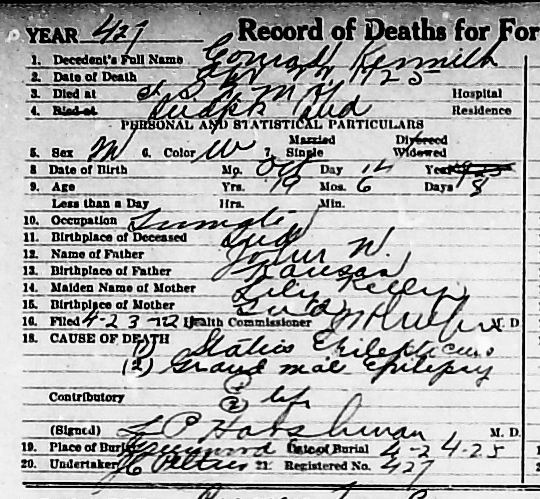 YEAR 427 Record of Deaths for For
1. Decedent's Full Name Conrad Kenneth
2. Date of Death 1925
3. Died at Hospital
4. Died at Ind Residence
PERSONAL AND STATISTICAL PARTICULARS
Married Divorced
5. Sex M 6. Color W 7. Single Widowed
8 Date of Birth Mo. Oct Day 14 Year
9. Age Yrs. 19 Mos. 6 Days 8
Less than a Day Hrs. Min.
10. Occupation Inmate
11. Birthplace of Deceased Ind
12. Name of Father W.
13. Birthplace of Father Kansas
14. Maiden Name of Mother Lily Kelley
15. Birthplace of Mother Ind
16. Filed 4-23- Health Commissioner M. D.
18. CAUSE OF DEATH (1) Status Epilepticus
(2) Grand mal Epilepsy
Contributory (1)
(2) life
(Signed) L P Harshman M. D.
19. Place of Burial Date of Burial 4-24-25
20. Undertaker 21. Registered No. 427